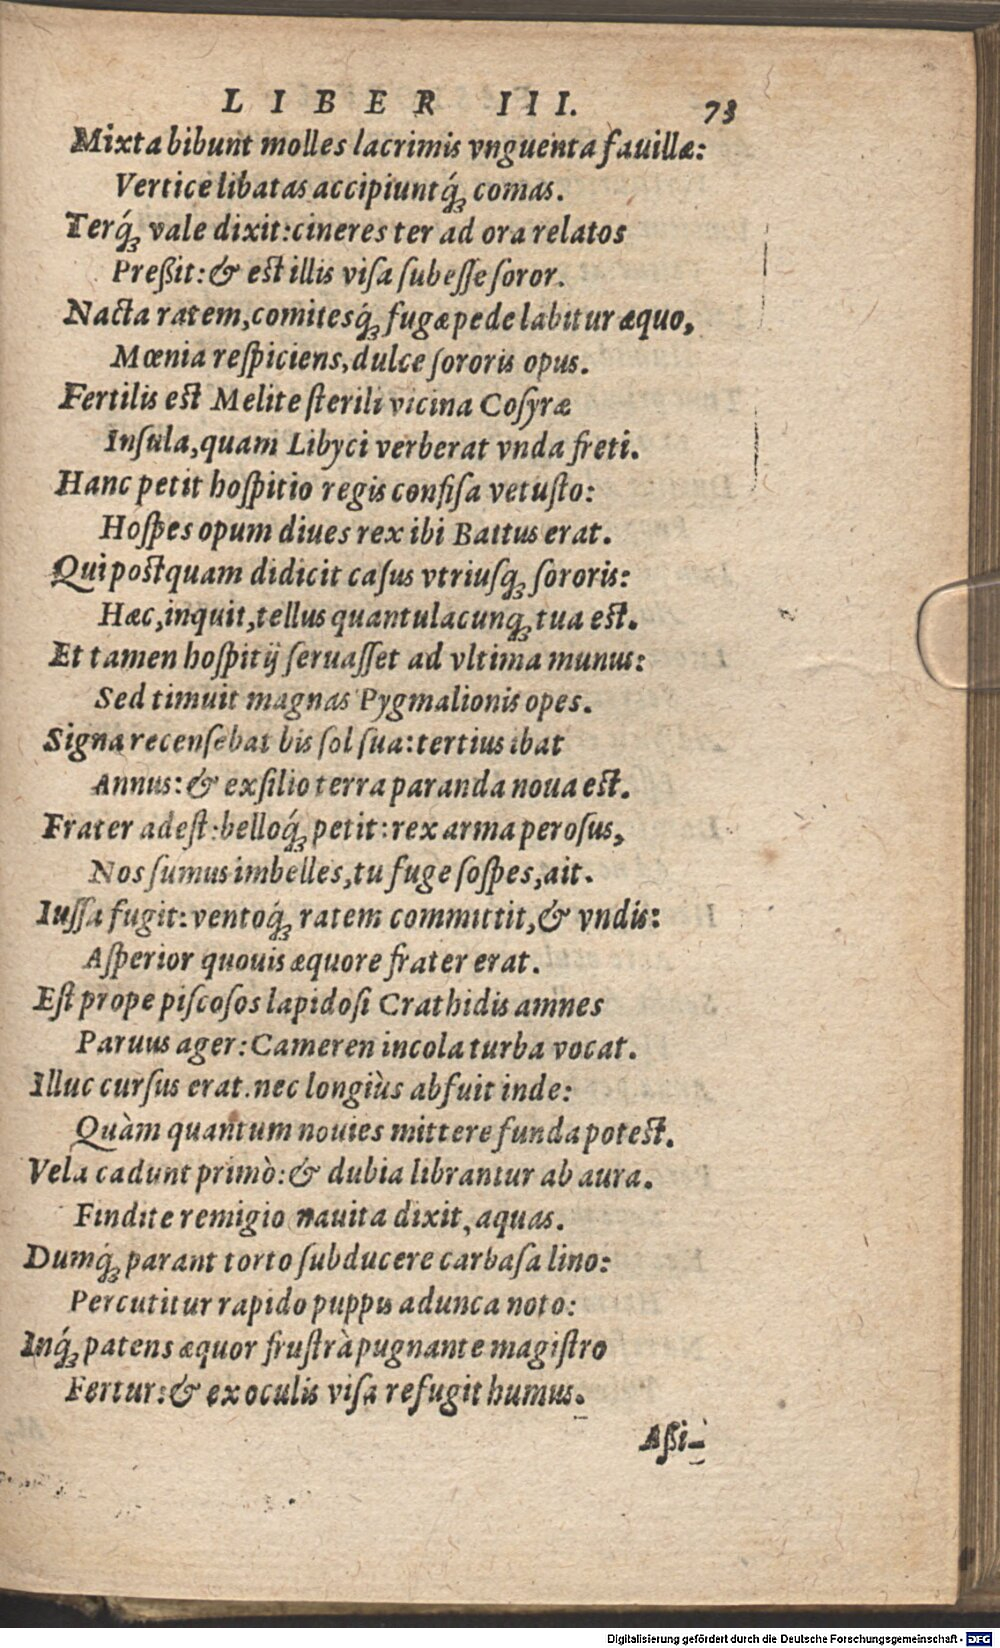 LIBER III. 73
Mixta bibunt molles lacrimis vnguenta fauillæ:
Vertice libatas accipiuntq́ꝫ comas.
Terq́ꝫ vale dixit: cineres ter ad ora relatos
Preßit: & est illis visa subesse soror.
Nacta ratem, comitesq́ꝫ fugæ pede labitur æquo,
Mœnia respiciens, dulce sororis opus.
Fertilis est Melite sterili vicina Cosyræ
Insula, quam Libyci verberat vnda freti.
Hanc petit hospitio regis confisa vetusto:
Hospes opum diues rex ibi Battus erat.
Qui postquam didicit casus vtriusqꝫ sororis:
Hæc, inquit, tellus quantulacunqꝫ tua est.
Et tamen hospitij seruasset ad vltima munus:
Sed timuit magnas Pygmalionis opes.
Signa recensebat bis sol sua: tertius ibat
Annus: & exsilio terra paranda noua est.
Frater adest: belloq́ꝫ petit: rex arma perosus,
Nos sumus imbelles, tu fuge sospes, ait.
Iussa fugit: ventoq́ꝫ ratem committit, & vndis:
Asperior quouis æquore frater erat.
Est prope piscosos lapidosi Crathidis amnes
Paruus ager: Cameren incola turba vocat.
Illuc cursus erat. nec longiùs abfuit inde:
Quàm quantum nouies mittere funda potest.
Vela cadunt primò: & dubia librantur ab aura.
Findite remigio nauita dixit, aquas.
Dumq́ꝫ parant torto subducere carbasa lino:
Percutitur rapido puppis adunca noto:
Inq́ꝫ patens æquor frustrà pugnante magistro
Fertur: & ex oculis visa refugit humus.
Aßi-
Digitalisierung gefördert durch die Deutsche Forschungsgemeinschaft - DFG